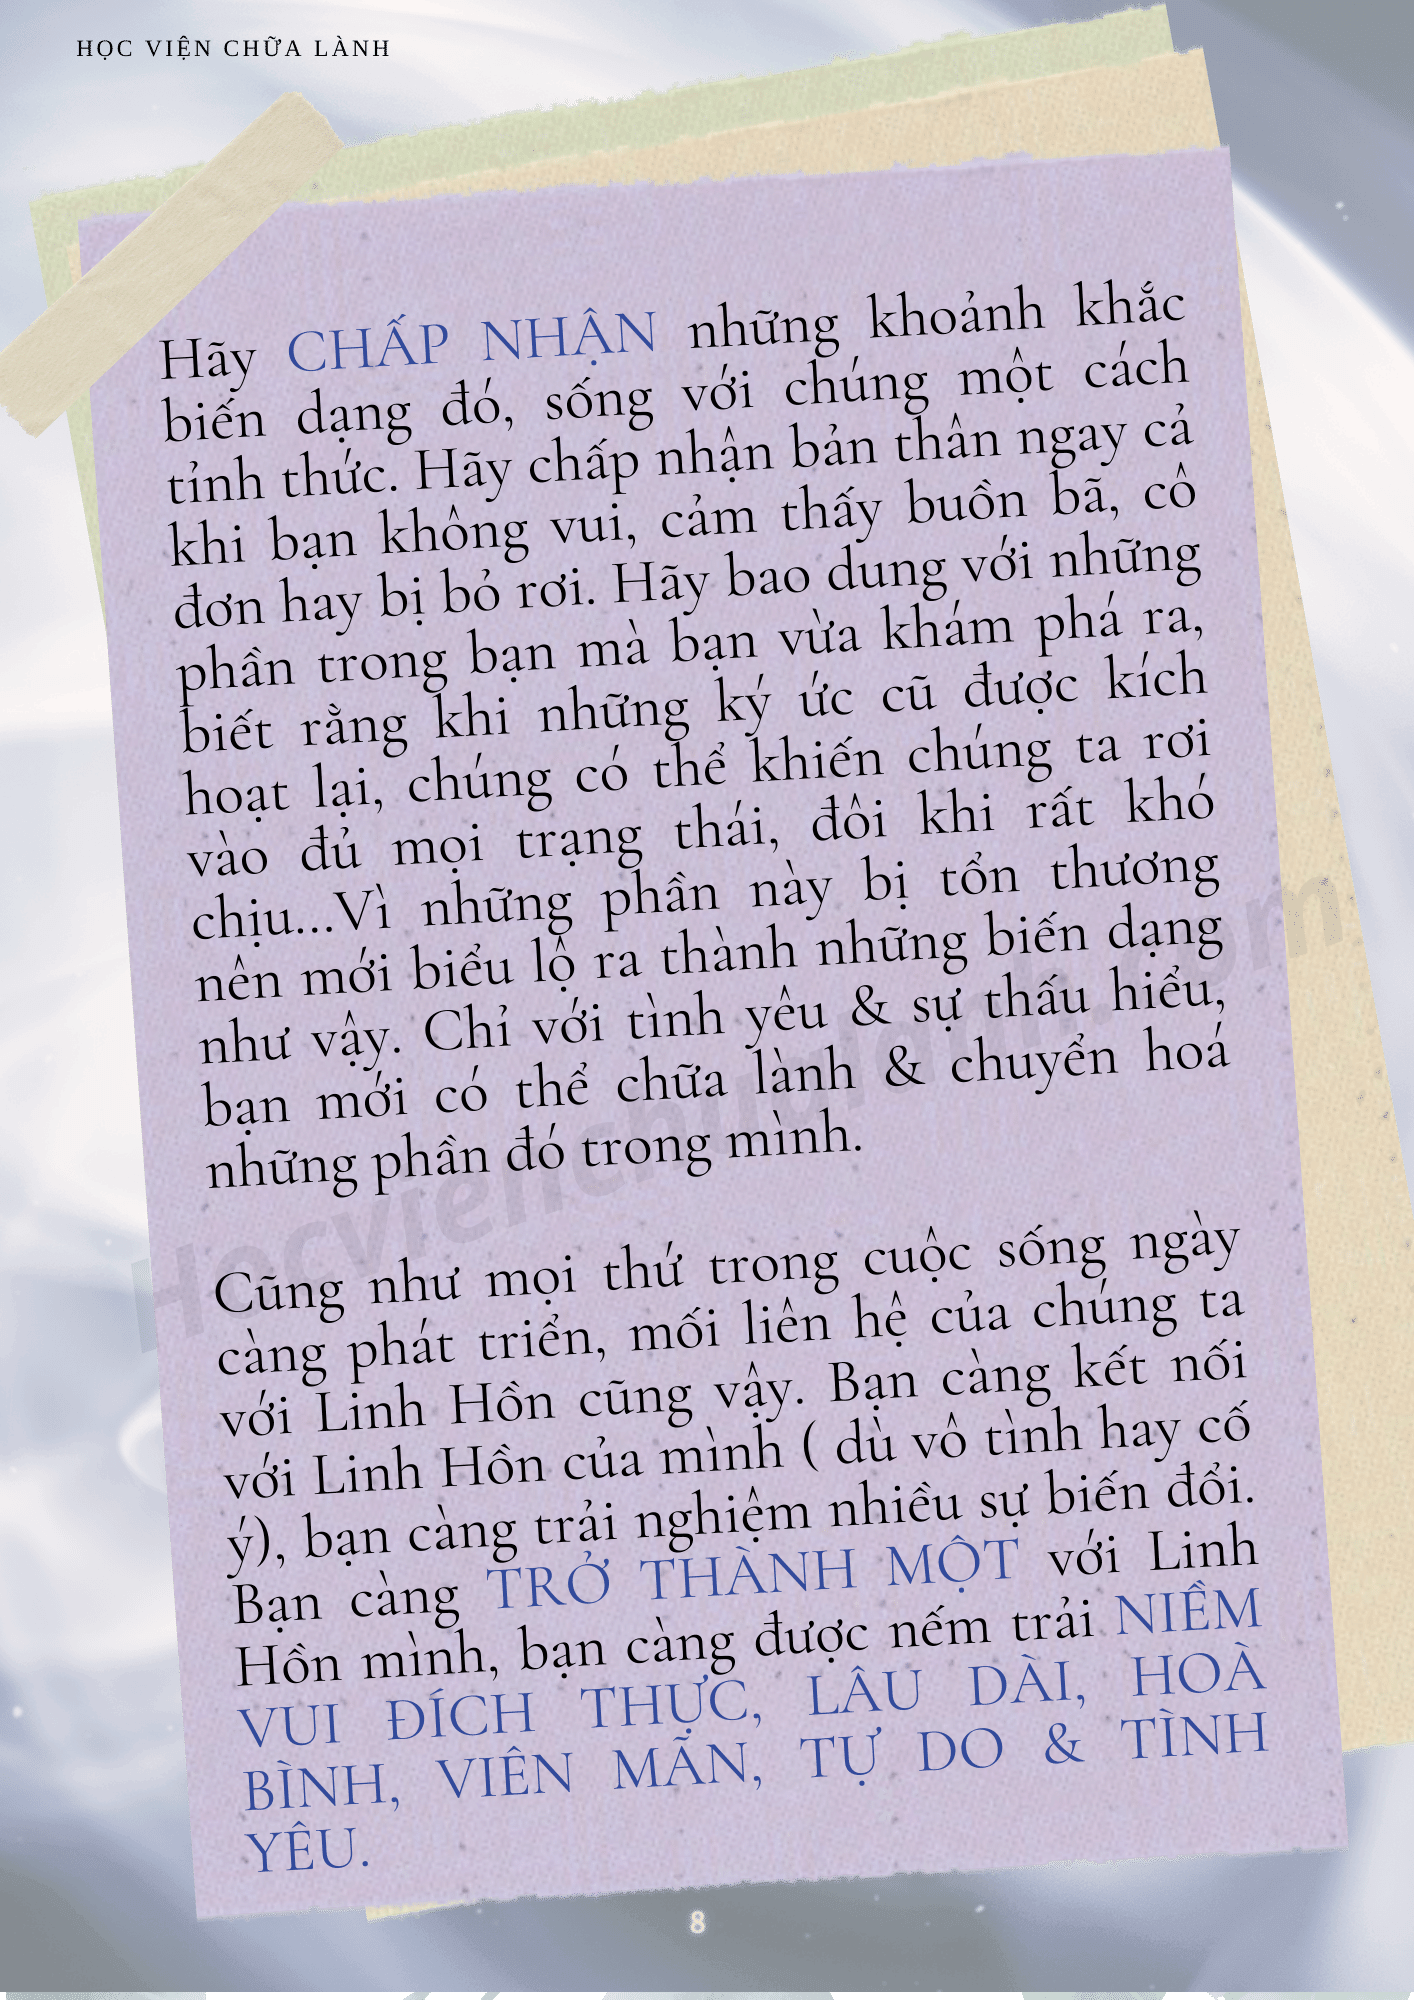 HỌC VIỆN CHỮA LÀNH
Hãy CHẤP NHẬN những khoảnh khắc
biến dạng đó, sống với chúng một cách
tỉnh thức. Hãy chấp nhận bản thân ngay cả
khi bạn không vui, cảm thấy buồn bã, cô
đơn hay bị bỏ rơi. Hãy bao dung với những
phần trong bạn mà bạn vừa khám phá ra,
biết rằng khi những ký ức cũ được kích
hoạt lại, chúng có thể khiến chúng ta rơi
vào đủ mọi trạng thái, đôi khi rất khó
chịu...Vì những phần này bị tổn thương
nên mới biểu lộ ra thành những biến dạng
như vậy. Chỉ với tình yêu & sự thấu hiểu,
bạn mới có thể chữa lành & chuyển hoá
những phần đó trong mình.
Cũng như mọi thứ trong cuộc sống ngày
càng phát triển, mối liên hệ của chúng ta
với Linh Hồn cũng vậy. Bạn càng kết nối
với Linh Hồn của mình ( dù vô tình hay cố
ý), bạn càng trải nghiệm nhiều sự biến đổi.
Bạn càng TRỞ THÀNH MỘT với Linh
Hồn mình, bạn càng được nếm trải NIỀM
VUI ĐÍCH THỰC, LÂU DÀI, HOÀ
BÌNH, VIÊN MÃN, TỰ DO & TÌNH
YÊU.
Hocvienchualanh.com
8